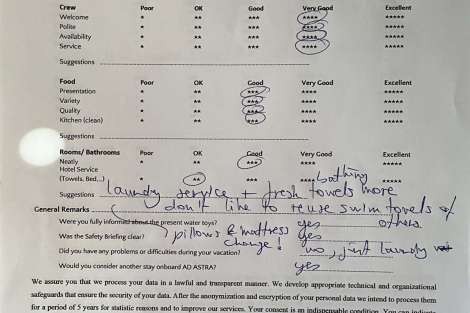 Crew Poor OK Good Very Good Excellent
Welcome * ** *** **** *****
Polite * ** *** **** *****
Availability * ** *** **** *****
Service * ** *** **** *****
Suggestions
Food Poor OK Good Very Good Excellent
Presentation * ** *** **** *****
Variety * ** *** **** *****
Quality * ** *** **** *****
Kitchen (clean) * ** *** **** *****
Suggestions
Rooms/ Bathrooms Poor OK Good Very Good Excellent
Neatly * ** *** **** *****
Hotel Service
(Towels, Bed,..) * ** *** **** bathing *****
Suggestions laundry service + fresh towels more
General Remarks don't like to reuse swim towels of
Were you fully informed about the present water toys? yes others.
Was the Safety Briefing clear? pillows & mattress yes
change!
Did you have any problems or difficulties during your vacation? no, just laundry
Would you consider another stay onboard AD ASTRA? yes
We assure you that we process your data in a lawful and transparent manner. We develop appropriate technical and organizational
safeguards that ensure the security of your data. After the anonymization and encryption of your personal data we intend to process them
for a period of 5 years for statistic reasons and to improve our services. Your consent is an indispensable condition. You can indicate